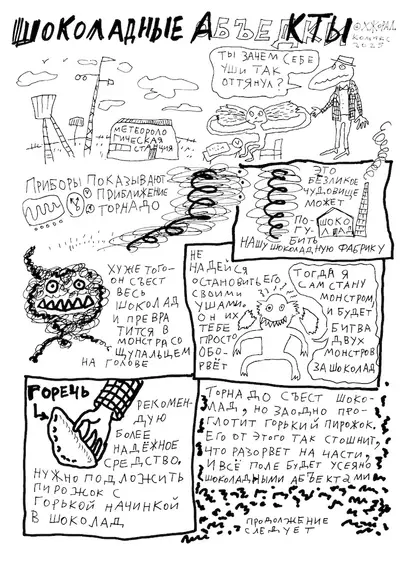 ШОКОЛАДНЫЕ АБЪЕДКТЫ
КОМПАС
2025
ТЫ ЗАЧЕМ СЕБЕ
УШИ ТАК
ОТТЯНУЛ?
МЕТЕОРОЛО
ГИЧЕСКАЯ
СТАНЦИЯ
ПРИБОРЫ ПОКАЗЫВАЮТ
ПРИБЛИЖЕНИЕ
ТОРНАДО
ЭТО
БЕЗЛИКОЕ
ЧУДОВИЩЕ
МОЖЕТ
ПО-
ГУ-
БИТЬ
ШОКО
ЛАД
НАШУ ШОКОЛАДНУЮ ФАБРИКУ
ХУЖЕ ТОГО-
ОН СЪЕСТ
ВЕСЬ
ШОКОЛАД
И ПРЕВРА
ТИТСЯ В
МОНСТРА СО
ЩУПАЛЬЦЕМ
НА ГОЛОВЕ
НЕ
НАДЕЙСЯ
ОСТАНОВИТЬ ЕГО
СВОИМИ
УШАМИ.
ОН ИХ
ТЕБЕ
ПРОСТО
ОБО-
РВЁТ
ТОГДА Я
САМ СТАНУ
МОНСТРОМ,
И БУДЕТ
БИТВА
ДВУХ
МОНСТРОВ
ЗА ШОКОЛАД
ГОРЕЧЬ
РЕКОМЕН-
ДУЮ
БОЛЕЕ
НАДЁЖНОЕ
СРЕДСТВО.
НУЖНО ПОДЛОЖИТЬ
ПИРОЖОК С
ГОРЬКОЙ НАЧИНКОЙ
В ШОКОЛАД
ТОРНАДО СЪЕСТ ШОКО-
ЛАД, НО ЗАОДНО ПРО-
ГЛОТИТ ГОРЬКИЙ ПИРОЖОК.
ЕГО ОТ ЭТОГО ТАК СТОШНИТ,
ЧТО РАЗОРВЕТ НА ЧАСТИ,
И ВСЁ ПОЛЕ БУДЕТ УСЕЯНО
ШОКОЛАДНЫМИ АБЪЕКТАМИ
ПРОДОЛЖЕНИЕ
СЛЕДУЕТ